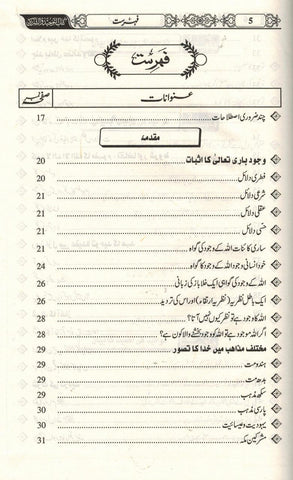 5 فہرست
فہرست
عنوانات صفحہ نمبر
چند ضروری اصطلاحات 17
مقدمہ
وجود باری تعالیٰ کا اثبات 20
فطری دلائل 20
شرعی دلائل 21
عقلی دلائل 21
حسی دلائل 21
ساری کائنات اللہ کے وجود کی گواہ 21
خود انسانی وجود اللہ کے وجود کا گواہ 24
اللہ کے وجود کی گواہی ایک خلا باز کی زبانی 26
ایک باطل نظریہ (نظریہ ارتقاء) اور اس کی تردید 26
اللہ کا وجود ہے تو نظر کیوں نہیں آتا؟ 28
اگر اللہ موجود ہے تو اللہ کو وجود بخشنے والا کون ہے؟ 28
مختلف مذاہب میں خدا کا تصور 29
ہندومت 29
بدھ مت 29
سکھ مذہب 29
پارسی مذہب 30
یہودیت و عیسائیت 30
مشرکین مکہ 31